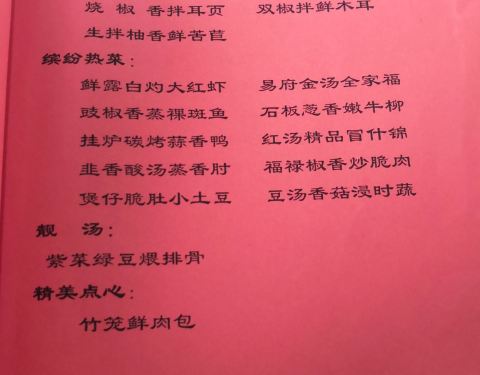 烧 椒 香拌耳页 双椒拌鲜木耳
生拌柚香鲜苦苣
缤纷热菜：
鲜露白灼大红虾 易府金汤全家福
豉椒香蒸裸斑鱼 石板葱香嫩牛柳
挂炉碳烤蒜香鸭 红汤精品冒什锦
韭香酸汤蒸香肘 福禄椒香炒脆肉
煲仔脆肚小土豆 豆汤香菇浸时蔬
靓 汤：
紫菜绿豆煨排骨
精美点心：
竹笼鲜肉包